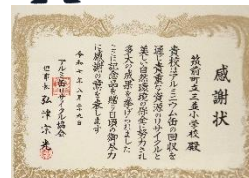 感謝状
筑前町立三並小学校 殿
貴校はアルミニウム缶の回収を
通じ貴重な資源のリサイクルと
美しい自然環境の保全に努力され
多大の成果を挙げられました
ここに記念品を贈り日頃の御尽力
に感謝の意を表します
令和七年八月二十九日
アルミ缶リサイクル協会
理事長 弘津宗光